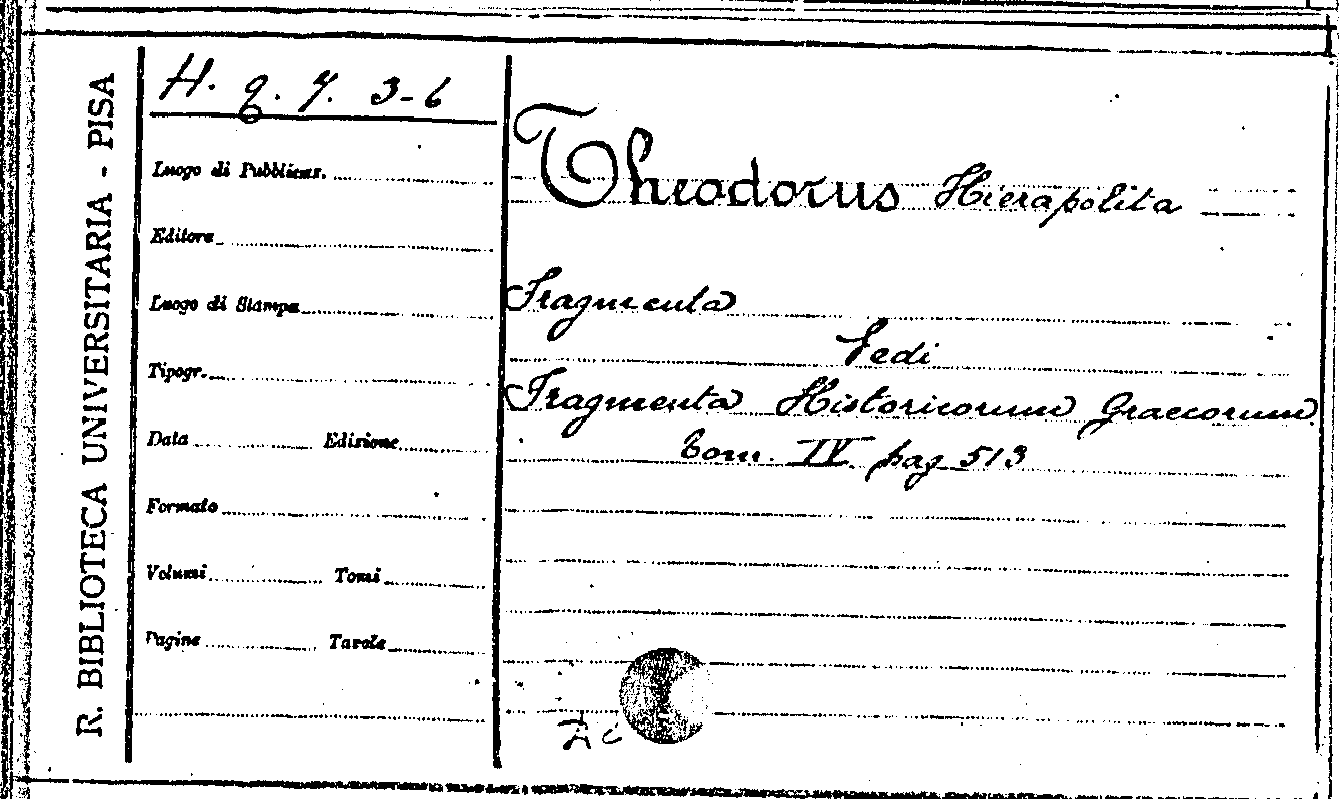 R. BIBLIOTECA UNIVERSITARIA - PISA
H. q. 7. 3-6
Luogo di Pubblicaz.
Editore
Luogo di Stampa
Tipogr.
Data Edizione
Formato
Volumi Tomi
Pagine Tavole
Theodorus Hierapolita
Fragmenta
Vedi
Fragmenta Historicorum Graecorum
tom. IV. pag 513